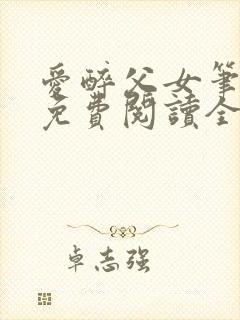 愛醉父女筆
免費閱讀全
卓志強